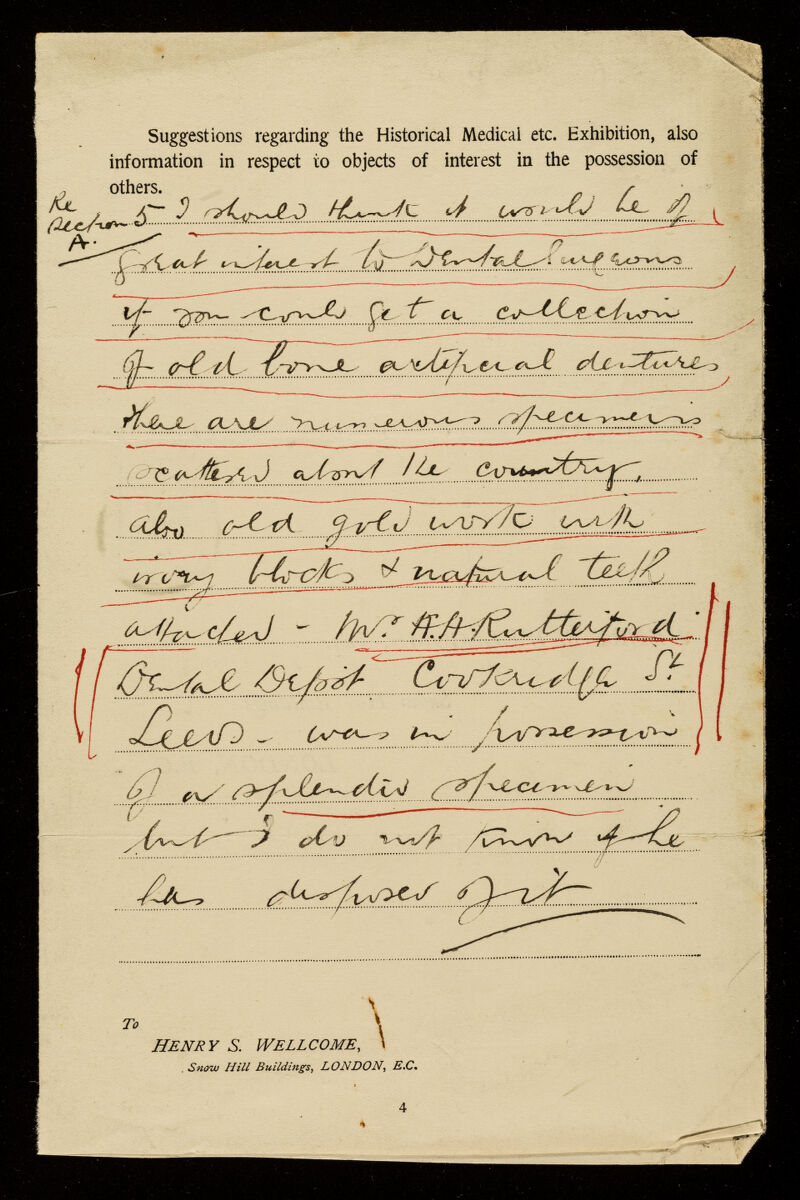 Suggestions regarding the Historical Medical etc. Exhibition, also
information in respect to objects of interest in the possession of
others.
Re
section 5 I should think it would be of
A.
great interest to Dental Surgeons
if you could get a collection
of old bone artificial dentures
there are numerous specimens
scattered about the country,
also old gold work with
ivory blocks & natural teeth
attached - Mr. A.H. Rutterford
Dental Depôt Cookridge St.
Leeds - was in possession
of a splendid specimen
but I do not know if he
has disposed of it
To
HENRY S. WELLCOME,
Snow Hill Buildings, LONDON, E.C.
4